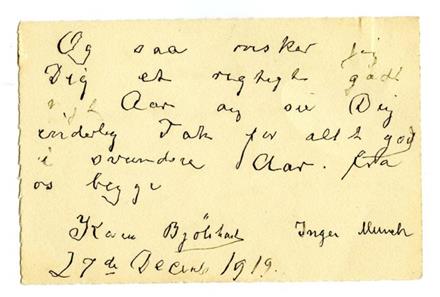 Og saa ønsker jeg
Dig et rigtigt godt
nyt Aar og sier Dig
inderlig Tak for alt godt
i svundere Aar. fra
os begge
Karen Bjölstad Inger Munch
27de Decemb 1919.